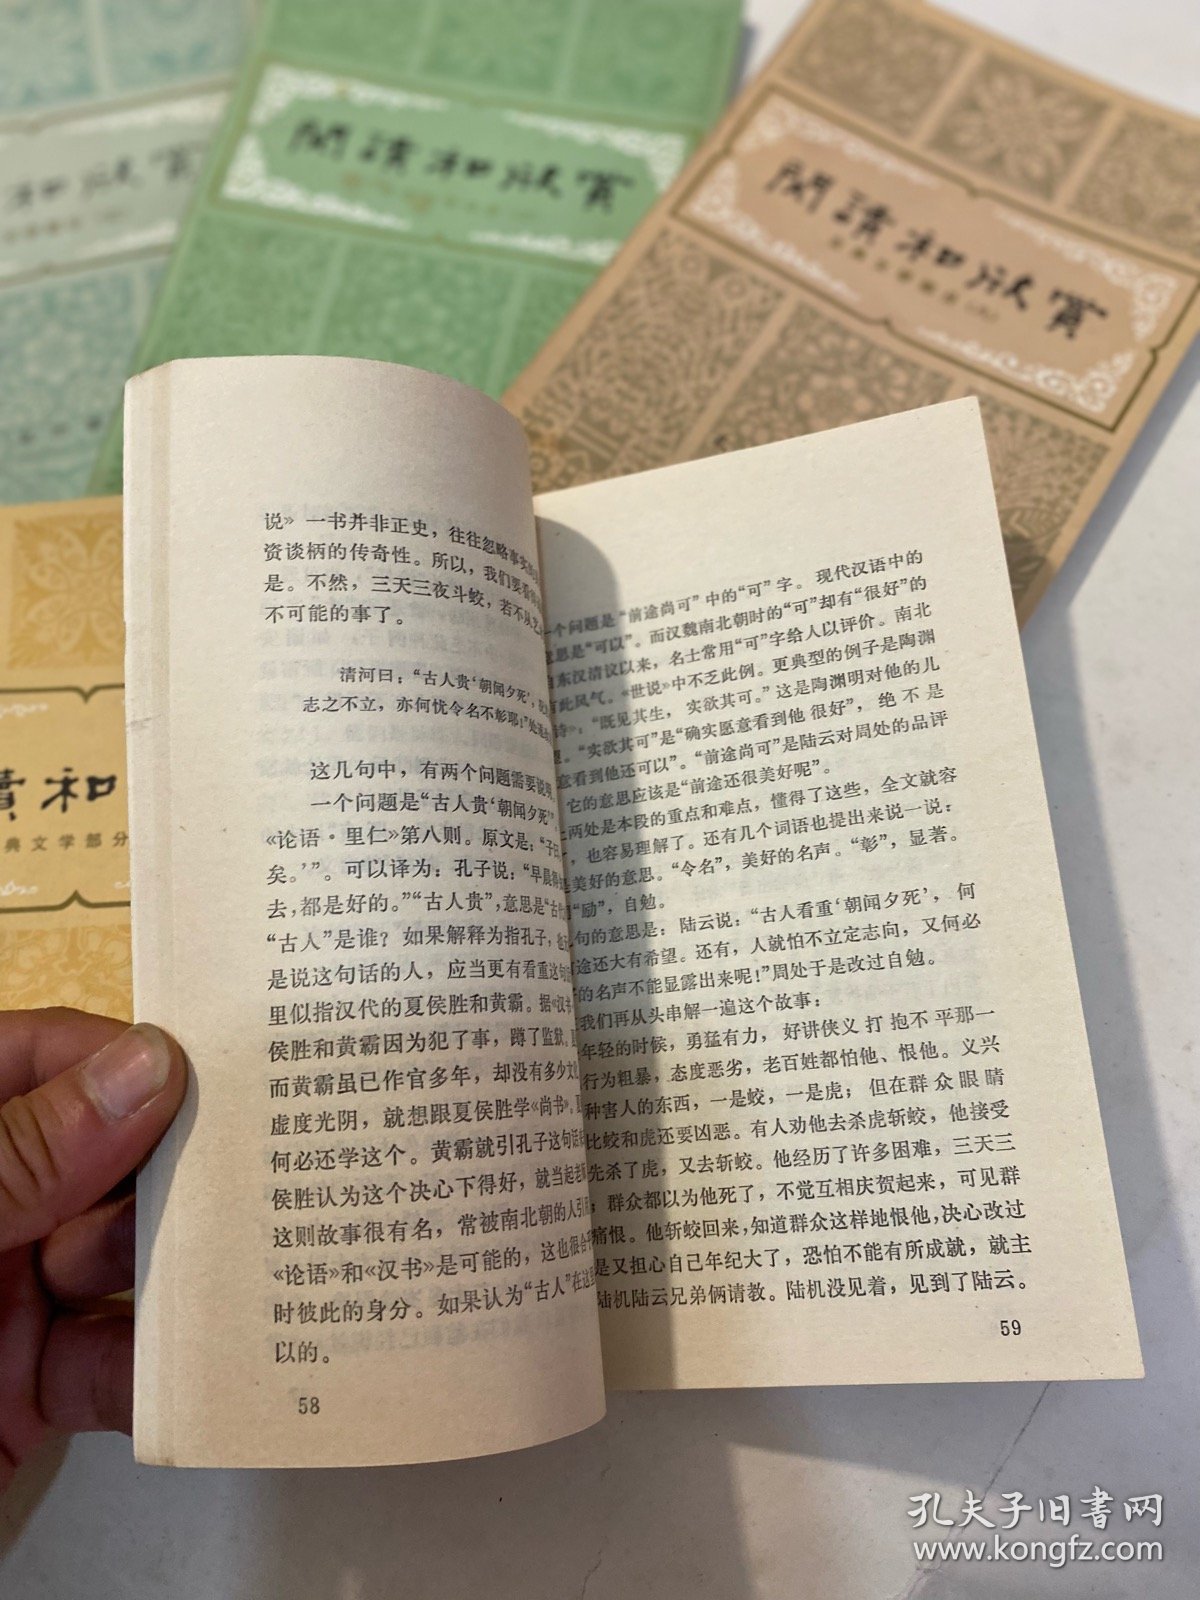 和欣赏
阅读和欣赏
阅读和欣赏
古典文学部分
讀和
典文学部分
说》一书并非正史，往往忽略事实
资谈柄的传奇性。所以，我们要看
是。不然，三天三夜斗蛟，若不从艺
不可能的事了。
清河曰：“古人贵‘朝闻夕死’，
志之不立，亦何忧令名不彰耶！”处遂
这几句中，有两个问题需要说明
一个问题是“古人贵‘朝闻夕死’”
《论语·里仁》第八则。原文是：“子曰
矣。’”。可以译为：孔子说：“早晨得
去，都是好的。”“古人贵”，意思是“古
“古人”是谁？如果解释为指孔子，他
是说这句话的人，应当更有看重这句
里似指汉代的夏侯胜和黄霸。据《汉书
侯胜和黄霸因为犯了事，蹲了监狱。
而黄霸虽已作官多年，却没有多少文
虚度光阴，就想跟夏侯胜学《尚书》。
何必还学这个。黄霸就引孔子这句话
侯胜认为这个决心下得好，就当起老
这则故事很有名，常被南北朝的人引用
《论语》和《汉书》是可能的，这也很合乎
时彼此的身分。如果认为“古人”在这里
以的。
58
一个问题是“前途尚可”中的“可”字。现代汉语中的
意思是“可以”。而汉魏南北朝时的“可”却有“很好”的
自东汉清议以来，名士常用“可”字给人以评价。南北
有此风气。《世说》中不乏此例。更典型的例子是陶渊
诗》：“既见其生，实欲其可。”这是陶渊明对他的儿
望。“实欲其可”是“确实愿意看到他很好”，绝不是
意看到他还可以”。“前途尚可”是陆云对周处的品评
它的意思应该是“前途还很美好呢”。
两处是本段的重点和难点，懂得了这些，全文就容
，也容易理解了。还有几个词语也提出来说一说：
美好的意思。“令名”，美好的名声。“彰”，显著。
“励”，自勉。
句的意思是：陆云说：“古人看重‘朝闻夕死’，何
途还大有希望。还有，人就怕不立定志向，又何必
的名声不能显露出来呢！”周处于是改过自勉。
我们再从头串解一遍这个故事：
年轻的时候，勇猛有力，好讲侠义打抱不平那一
行为粗暴，态度恶劣，老百姓都怕他、恨他。义兴
种害人的东西，一是蛟，一是虎；但在群众眼睛
比蛟和虎还要凶恶。有人劝他去杀虎斩蛟，他接受
先杀了虎，又去斩蛟。他经历了许多困难，三天三
，群众都以为他死了，不觉互相庆贺起来，可见群
痛恨。他斩蛟回来，知道群众这样地恨他，决心改过
是又担心自己年纪大了，恐怕不能有所成就，就主
陆机陆云兄弟俩请教。陆机没见着，见到了陆云。
59
孔夫子旧书网
www.kongfz.com